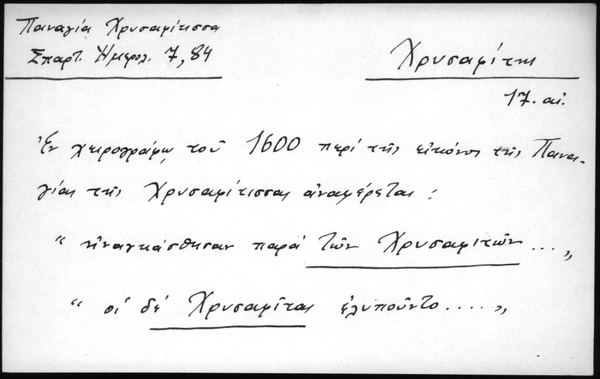 Παναγία Χρυσαφίτισσα
Σπαρτ. Ἡμερολ. 7, 84
Χρυσαφίτης
17. αἰ.
Ἐν χειρογράφῳ τοῦ 1600 περί τῆς εἰκόνος τῆς Πανα-
γίας τῆς Χρυσαφίτισσας ἀναφέρεται :
“ ἠναγκάσθησαν παρά τῶν Χρυσαφιτῶν ... „
“ οἱ δέ Χρυσαφῖται ἐλυποῦντο .... „